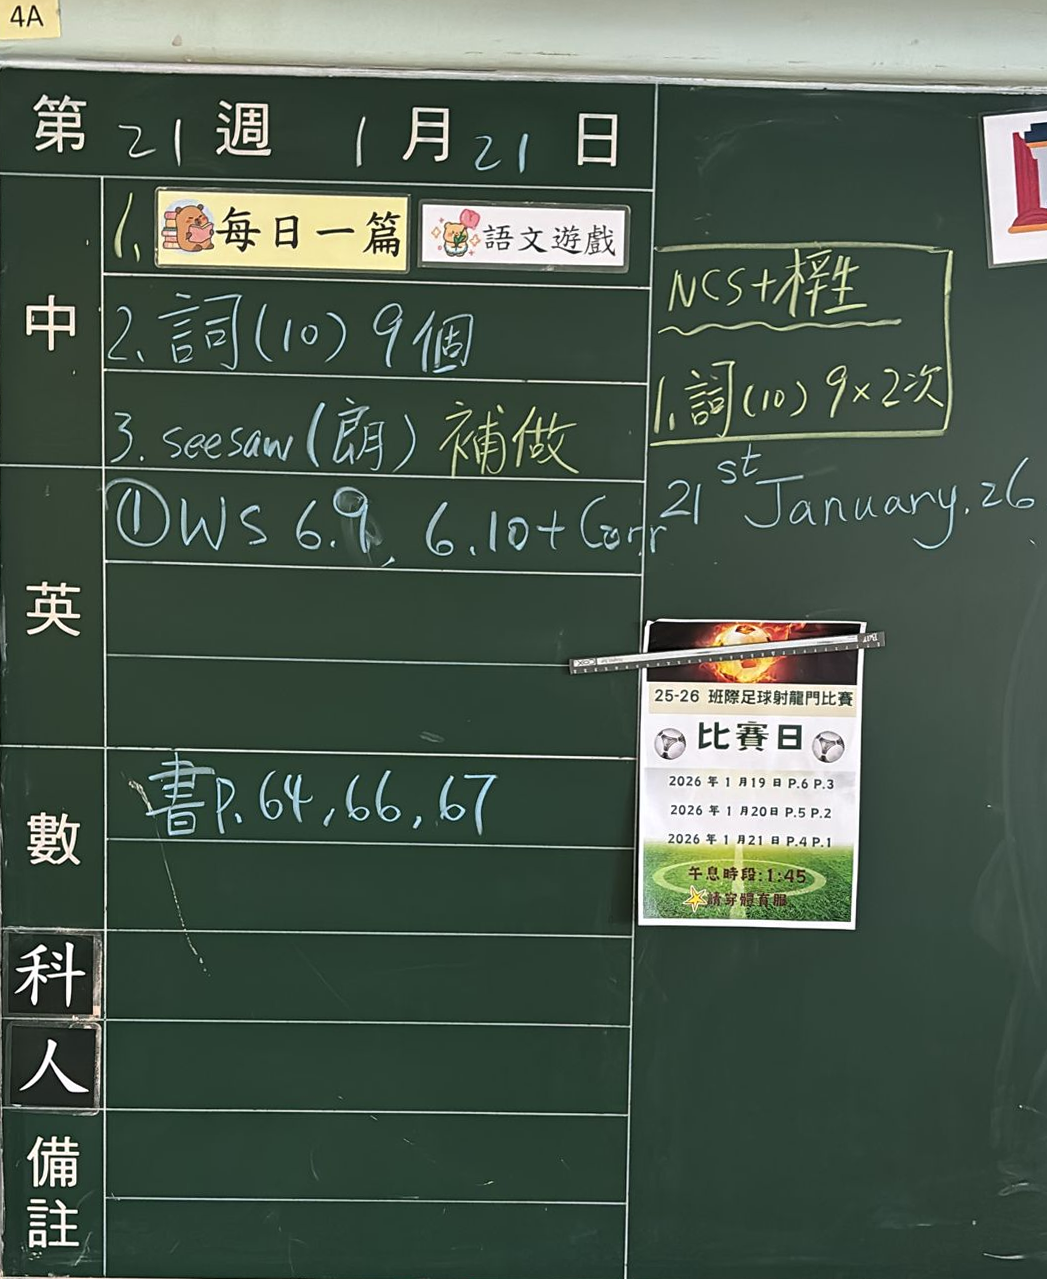 4A
第 21 週 1 月 21 日
中
1. 每日一篇 語文遊戲
2. 詞(10) 9個
3. seesaw(朗) 補做
NCS+ 生
1. 詞(10) 9×2次
英
① WS 6.9, 6.10 + Corr
21st January, 26
25-26 班際足球射龍門比賽
比賽日
2026 年 1 月19 日 P.6 P.3
2026 年 1 月20日 P.5 P.2
2026 年 1 月21 日 P.4 P.1
午息時段:1:45
請穿體育服
數
書P. 64, 66, 67
科
人
備註